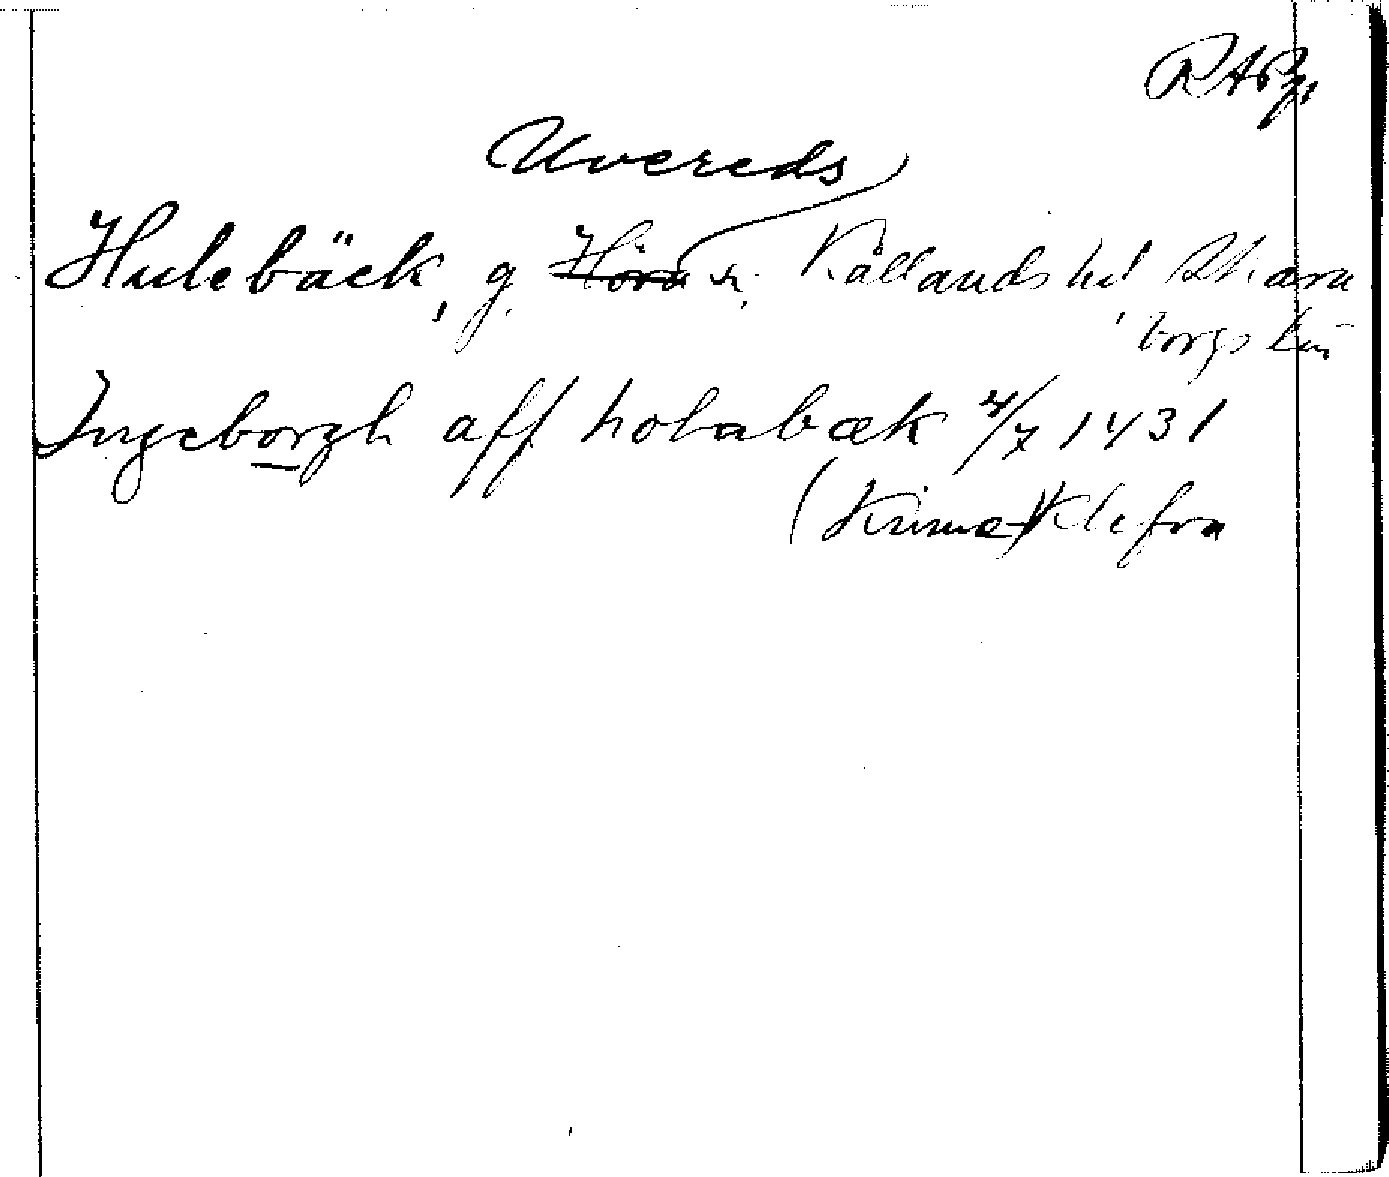 RAPg,
Uvereds
Hulebäck, g. Höra sn. Kållands hd Skara
borgs län
Ingeborgh aff holabæk 4/7 1431
(Kinne-)Klefva